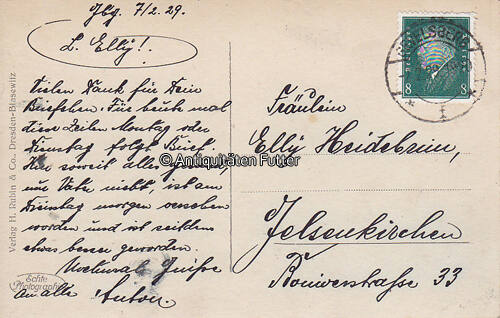 Jbg. 7/2. 29.
L. Elly!.
Vielen Dank für Dein
Briefchen. Für heute mal
diese Zeilen Montag oder
Dienstag folgt Brief.
Hier soweit alles
nur Vater nicht, ist am
Dienstag morgen versehen
worden und ist seitdem
etwas besser geworden.
Nochmals Grüße
an alle Anton.
Fräulein
Elly Heidebrim,
Gelsenkirchen
33
8 8
Verlag H. Rubin & Co., Dresden-Blasewitz
Echte
Photographie
© Antiquitäten Futter